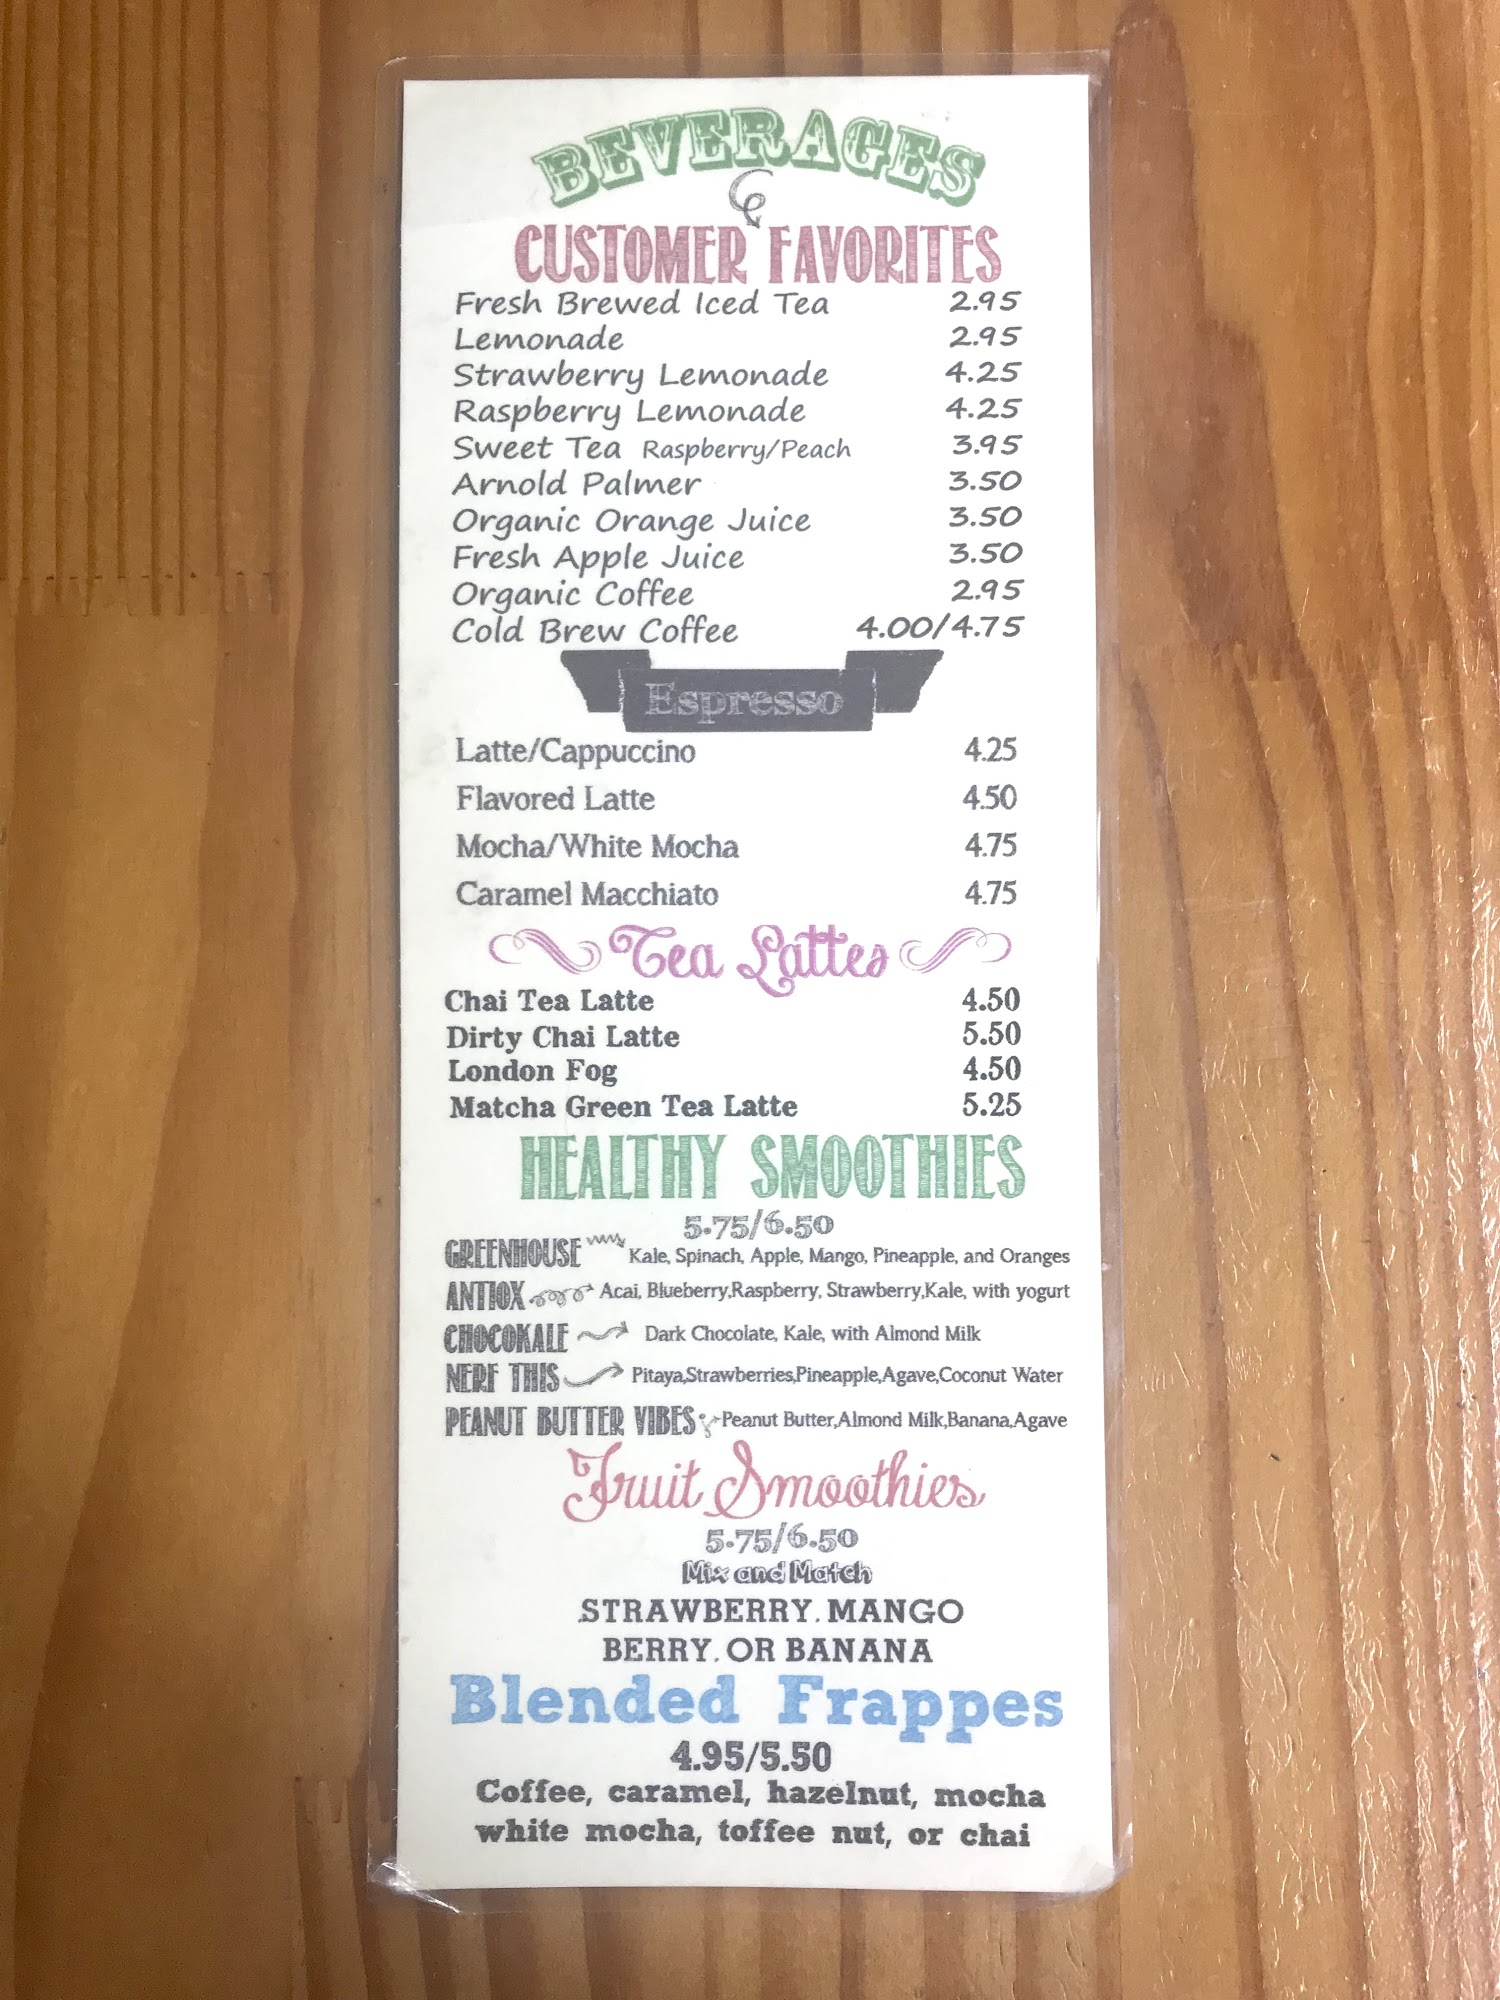 BEVERAGES
CUSTOMER FAVORITES
Fresh Brewed Iced Tea 2.95
Lemonade 2.95
Strawberry Lemonade 4.25
Raspberry Lemonade 4.25
Sweet Tea Raspberry/Peach 3.95
Arnold Palmer 3.50
Organic Orange Juice 3.50
Fresh Apple Juice 3.50
Organic Coffee 2.95
Cold Brew Coffee 4.00/4.75
Espresso
Latte/Cappuccino 4.25
Flavored Latte 4.50
Mocha/White Mocha 4.75
Caramel Macchiato 4.75
Tea Lattes
Chai Tea Latte 4.50
Dirty Chai Latte 5.50
London Fog 4.50
Matcha Green Tea Latte 5.25
HEALTHY SMOOTHIES
5.75/6.50
GREENHOUSE Kale, Spinach, Apple, Mango, Pineapple, and Oranges
ANTIOX Acai, Blueberry,Raspberry, Strawberry,Kale, with yogurt
CHOCOKALE Dark Chocolate, Kale, with Almond Milk
NERF THIS Pitaya,Strawberries,Pineapple,Agave,Coconut Water
PEANUT BUTTER VIBES Peanut Butter,Almond Milk,Banana,Agave
Fruit Smoothies
5.75/6.50
Mix and Match
.STRAWBERRY. MANGO
BERRY. OR BANANA
Blended Frappes
4.95/5.50
Coffee, caramel, hazelnut, mocha
white mocha, toffee nut, or chai